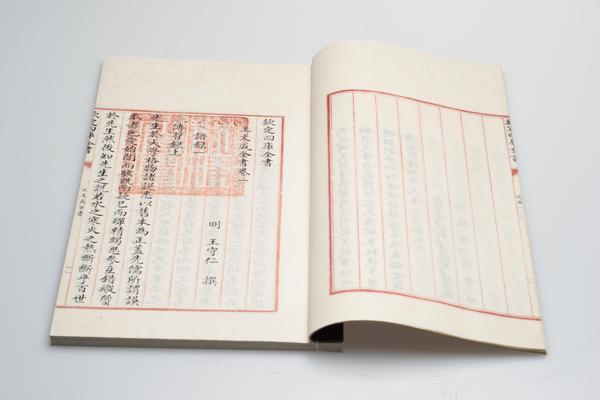 欽定四庫全書
王文成全書卷一
明 王守仁 撰
語錄一
傳習錄上
先生於大學格物諸說悉以舊本為正蓋先儒所謂誤
本者也愛始聞而駭既而疑已而殫精竭思參互錯縱質
於先生然後知先生之說若水之寒火之熱斷斷乎百世
欽定四庫全書
王文成全書